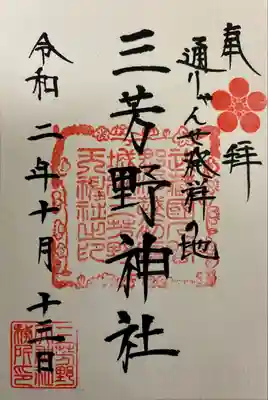 奉拝
通りゃんせ発祥の地
三芳野神社
令和二年十月十五日
三芳野
神社社
務所印